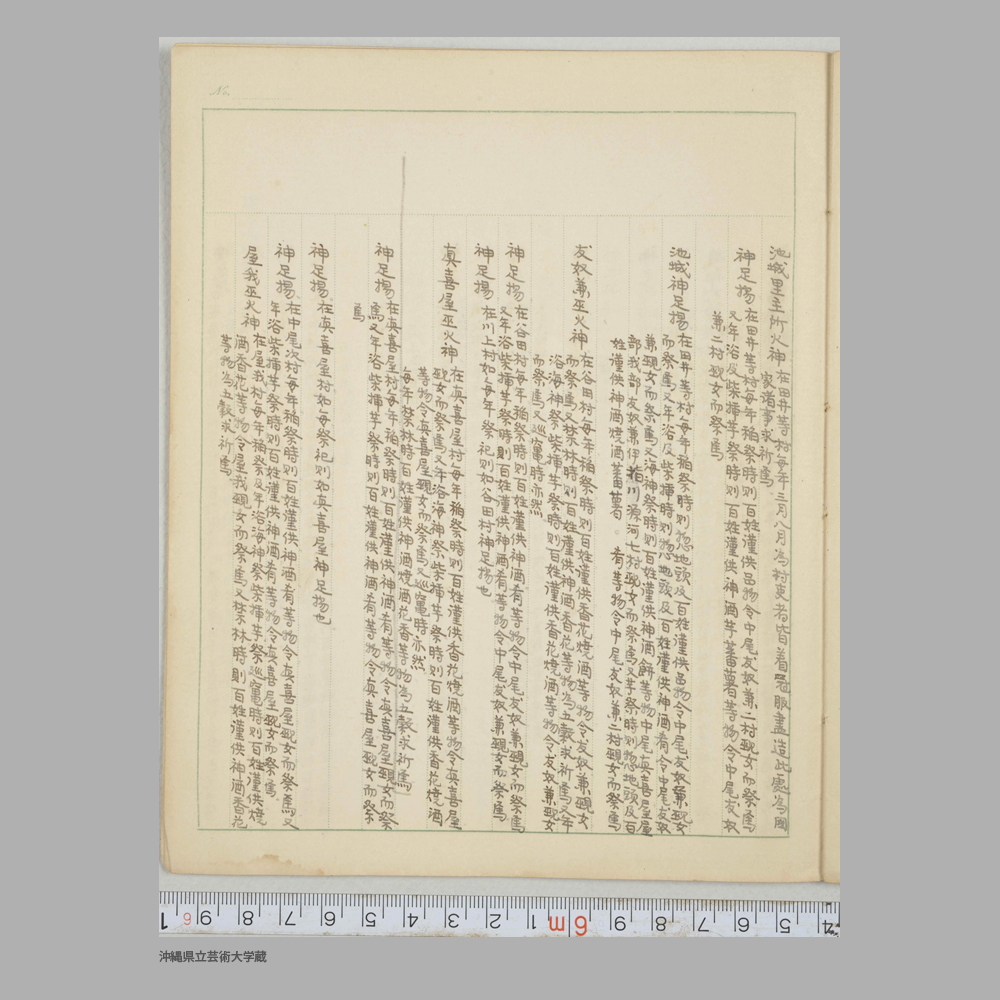 池城里主所火神 在田井等村毎年二月八月為村吏者皆着冠服盡造此處為國
家道事求祈焉
神足揚 在田井等村毎年稲祭時則百姓謹供品物令中尾友奴兼二村覡女而祭焉
又年浴及柴揷芋祭時則百姓謹供神酒芋蕃薯等物令中尾友奴
兼二村覡女而祭焉
池城神足揚 在田井等村毎年稲祭時則惣地頭及百姓謹供品物令中尾友奴兼覡女
而祭焉又年浴及柴揷時則惣地頭及百姓謹供神酒肴令中尾友奴
兼覡女而祭焉又海神祭時則百姓謹供神酒餅等物中尾真喜屋屋
部我部友奴兼伊指川源河七村覡女而祭焉又芋祭時則惣地頭及百
姓謹供神酒焼酒蕃薯。肴等物令中尾友奴兼二村覡女而祭焉
友奴兼巫火神 在谷田村毎年稲祭時則百姓謹供香花焼酒等物令友奴兼覡女
而祭焉又禁林時則百姓謹供神酒香花等物為五穀求祈焉又年
浴海神祭柴揷芋祭時則百姓謹供香花焼酒等物令友奴兼覡女
而祭焉又巡竃時亦然
神足揚 在谷田村毎年稲祭時則百姓謹供神酒肴等物令中尾友奴兼覡女而祭焉
又年浴柴揷芋祭時則百姓謹供神酒肴等物令中尾友奴兼覡女而祭焉
神足揚 在川上村如毎年祭祀則如谷田村神足揚也
真喜屋巫火神 在真喜屋村毎年稲祭時則百姓謹供香花焼酒等物令真喜屋
覡女而祭焉又年浴海神祭柴揷芋祭時則百姓謹供香花焼酒
等物令真喜屋覡女而祭焉又巡竃時亦然
毎年禁林時百姓謹供神酒焼酒花香等物為五穀求祈焉
神足揚 在真喜屋村毎年稲祭時則百姓謹供神酒肴等物令真喜屋覡女而祭
焉又年浴柴揷芋祭時則百姓謹供神酒肴等物令真喜屋覡女而祭
焉
神足揚 在真喜屋村如毎祭祀則如真喜屋神足揚也
神足揚 在中尾次村毎年稲祭時則百姓謹供神酒肴等物令真喜屋覡女而祭焉又
年浴柴揷芋祭時則百姓謹供神酒肴等物令真喜屋覡女而祭焉
屋我巫火神 在屋我村毎年稲祭及年浴海神祭柴揷芋祭巡竃時則百姓謹供焼
酒香花等物令屋我覡女而祭焉又禁林時則百姓謹供神酒香花
等物為五穀求祈焉
No.
1 6 9 8 7 6 5 4 3 2 1 6m 9 8 7 6 5 4
沖縄県立芸術大学蔵